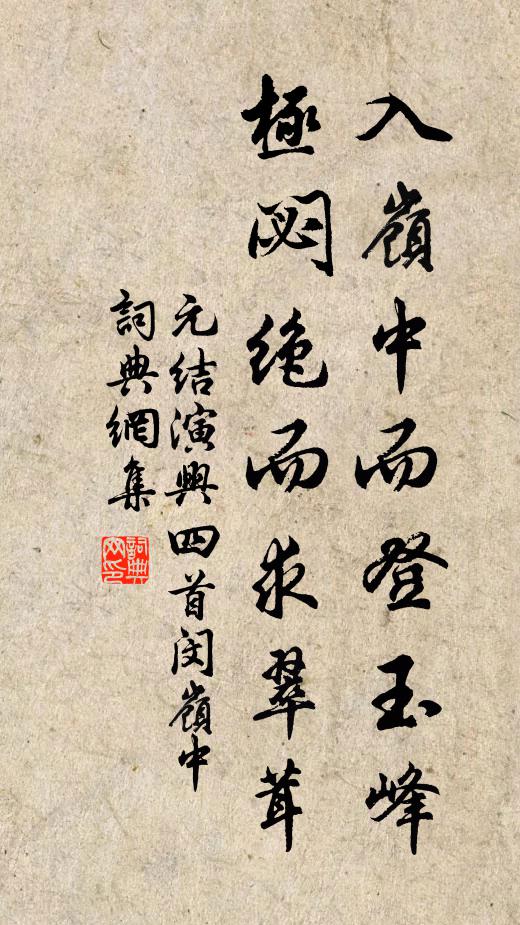 入嶺中而登玉峰
極閟絕而求翠茸
元结演興四首閔嶺中
詞典網集
詞典網印